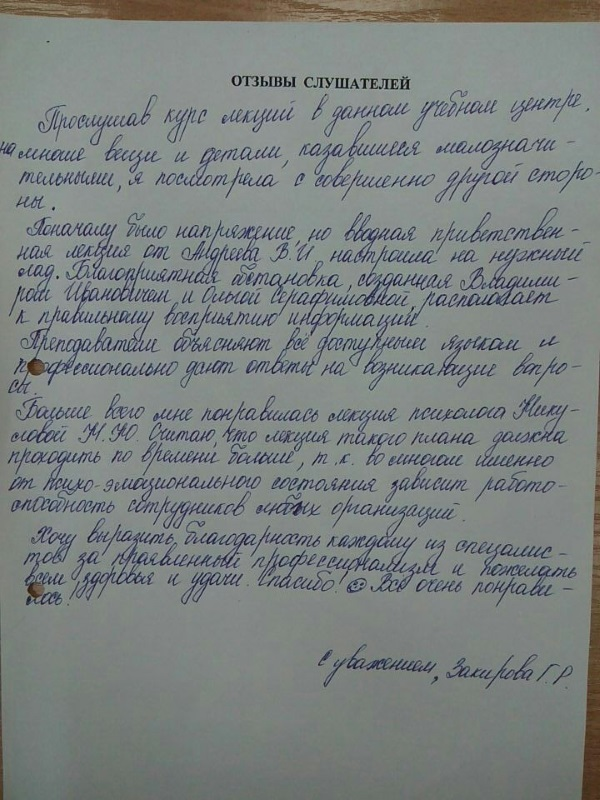 ОТЗЫВЫ СЛУШАТЕЛЕЙ
Прослушав курс лекций в данном учебном центре,
на многие вещи и детали, казавшиеся малозначи-
тельными, я посмотрела с совершенно другой сторо-
ны.
Поначалу было напряжение, но вводная приветствен-
ная лекция от Андреева В.И. настроила на нужный
лад. Благоприятная обстановка, созданная Владими-
ром Ивановичем и Ольгой Серафимовной, располагает
к правильному восприятию информаций.
Преподаватели объясняют всё доступным языком и
профессионально дают ответы на возникающие вопро-
сы.
Больше всего мне понравилась лекция психолога Мику-
словой Н.Ю. Считаю, что лекция такого плана должна
проходить по времени больше, т.к. во многом именно
от психо-эмационального состояния зависит работо-
способность сотрудников любых организаций.
Хочу выразить благодарность каждому из специалис-
тов за проявленный профессионализм и пожелать
всем здоровья и удачи. Спасибо! ☺ Всё очень понрави-
лось!
С уважением, Закирова Г.Р.